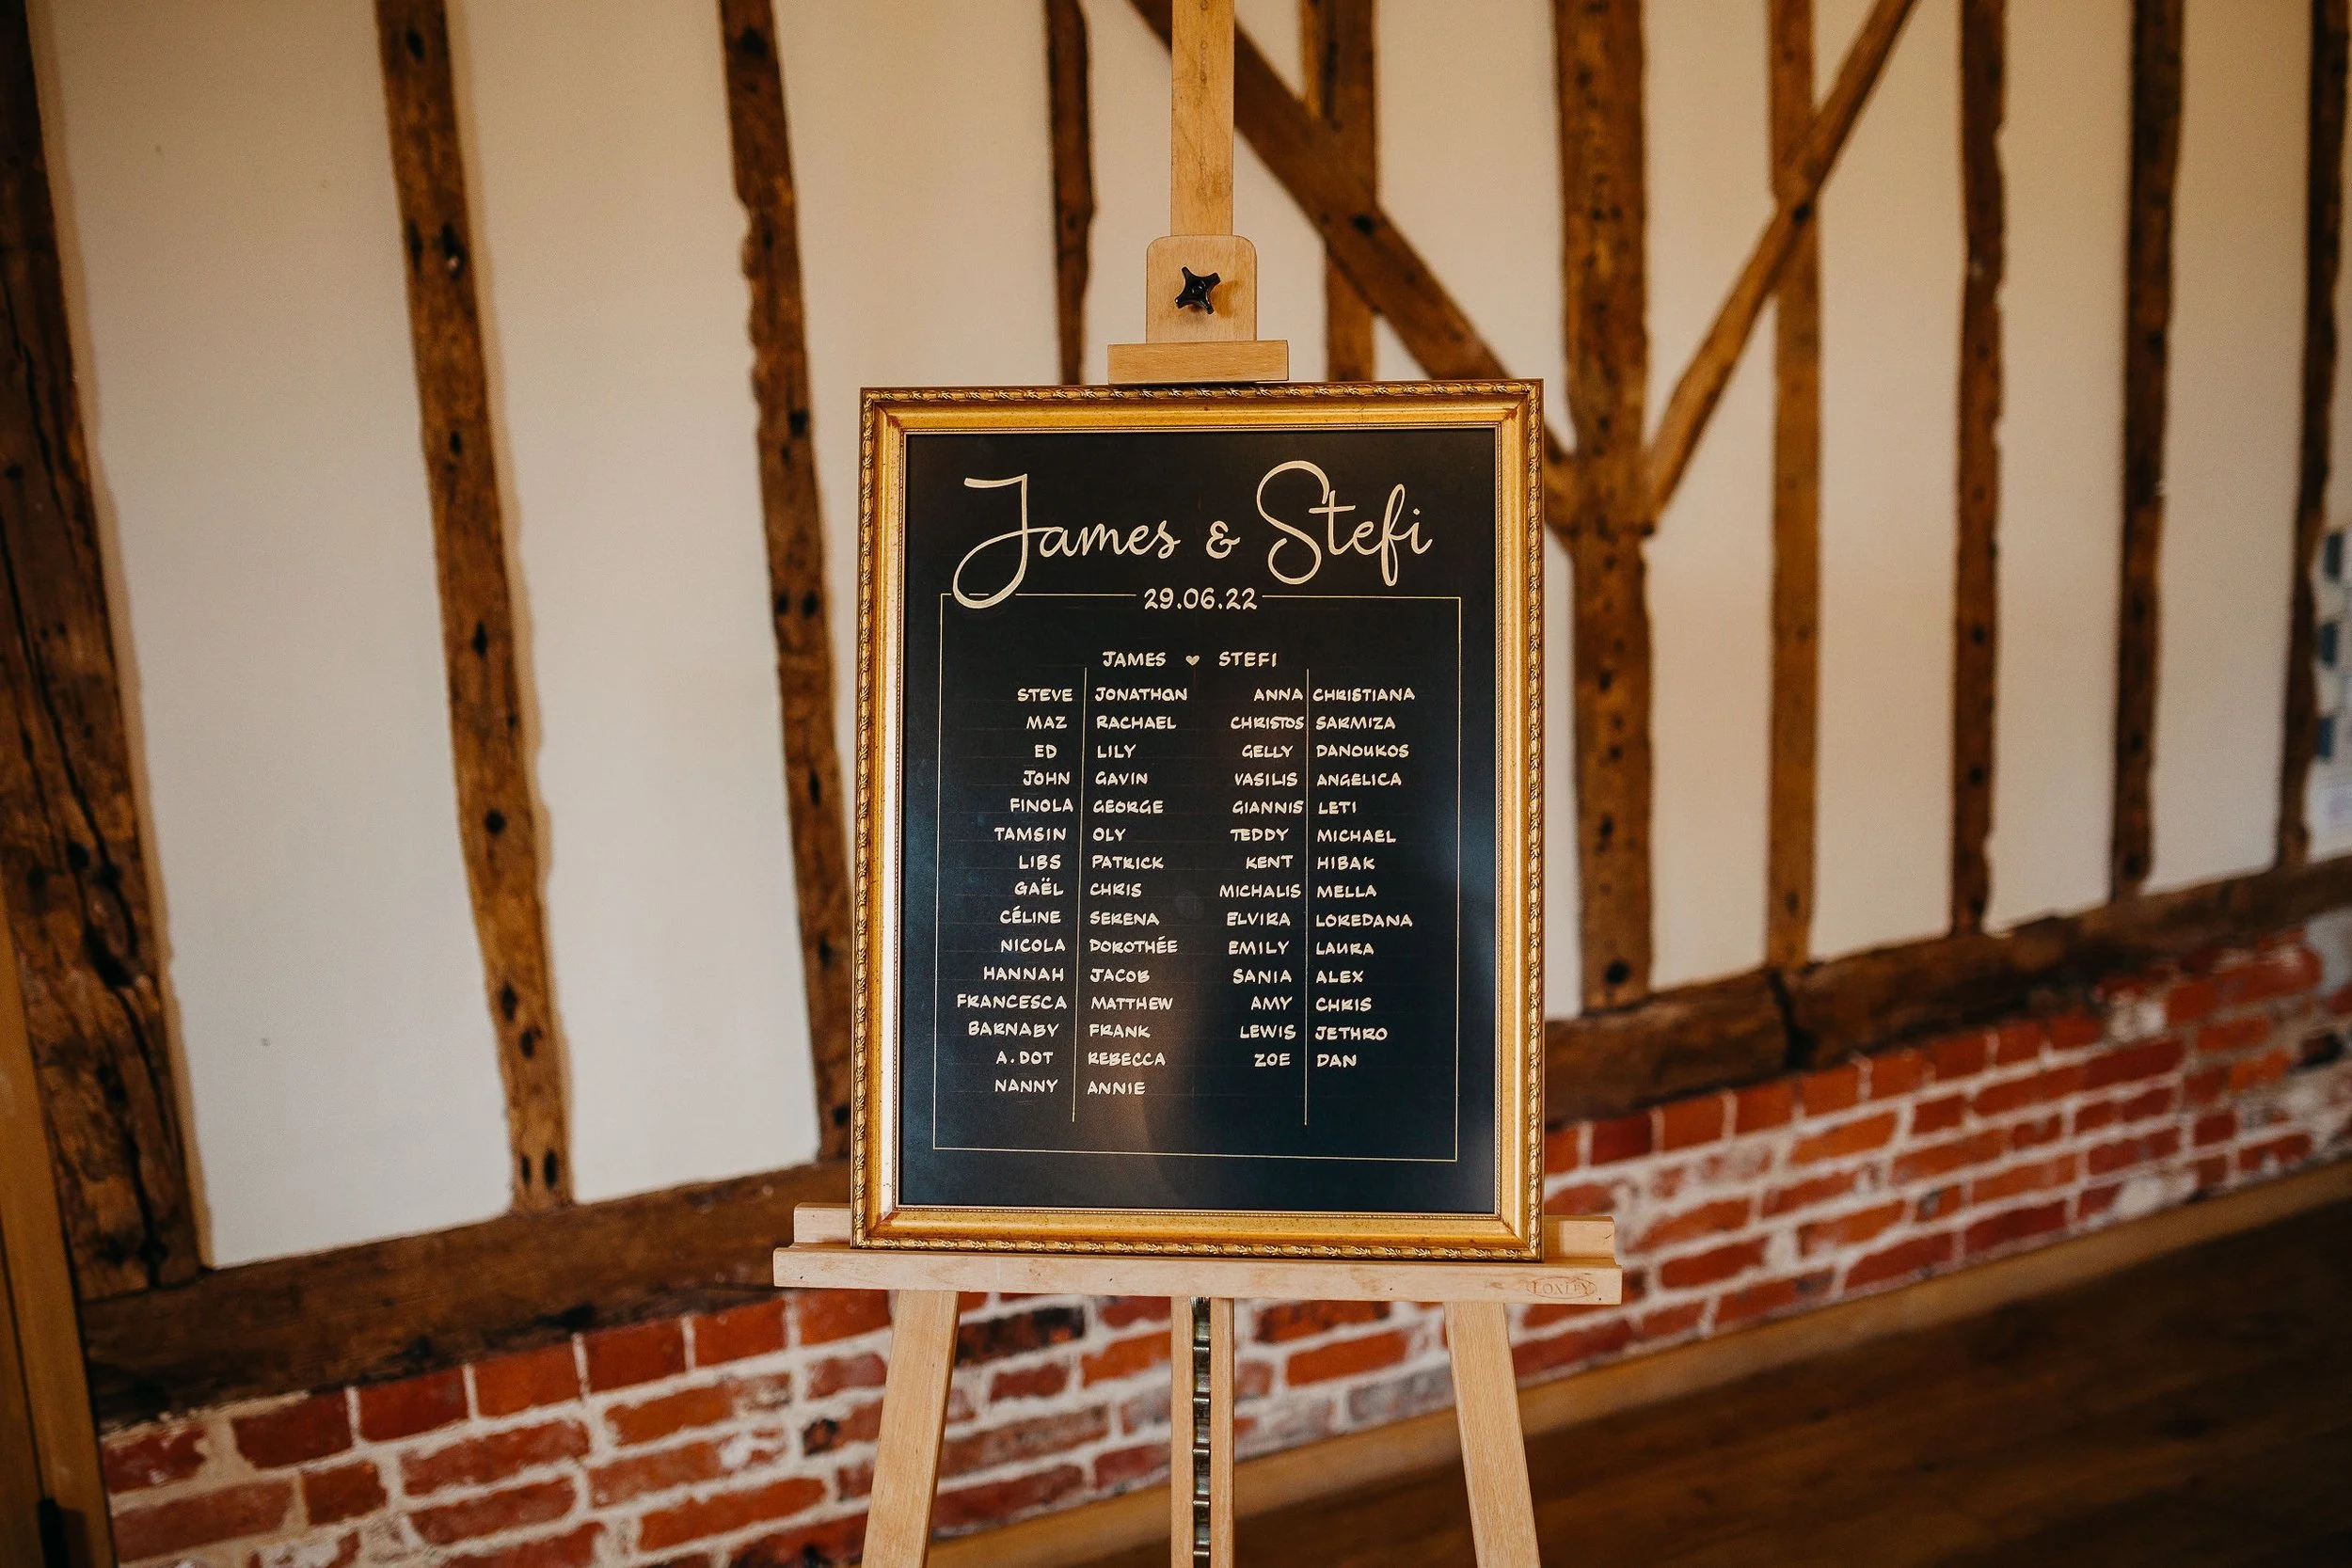 James & Stefi
29.06.22
JAMES ♥ STEFI
STEVE JONATHAN ANNA CHRISTIANA
MAZ RACHAEL CHRISTOS SARMIZA
ED LILY GELLY DANOUKOS
JOHN GAVIN VASILIS ANGELICA
FINOLA GEORGE GIANNIS LETI
TAMSIN OLY TEDDY MICHAEL
LIBS PATRICK KENT HIBAK
GAËL CHRIS MICHALIS MELLA
CÉLINE SERENA ELVIRA LOREDANA
NICOLA DOROTHÉE EMILY LAURA
HANNAH JACOB SANIA ALEX
FRANCESCA MATTHEW AMY CHRIS
BARNABY FRANK LEWIS JETHRO
A.DOT REBECCA ZOE DAN
NANNY ANNIE
LOXLEY